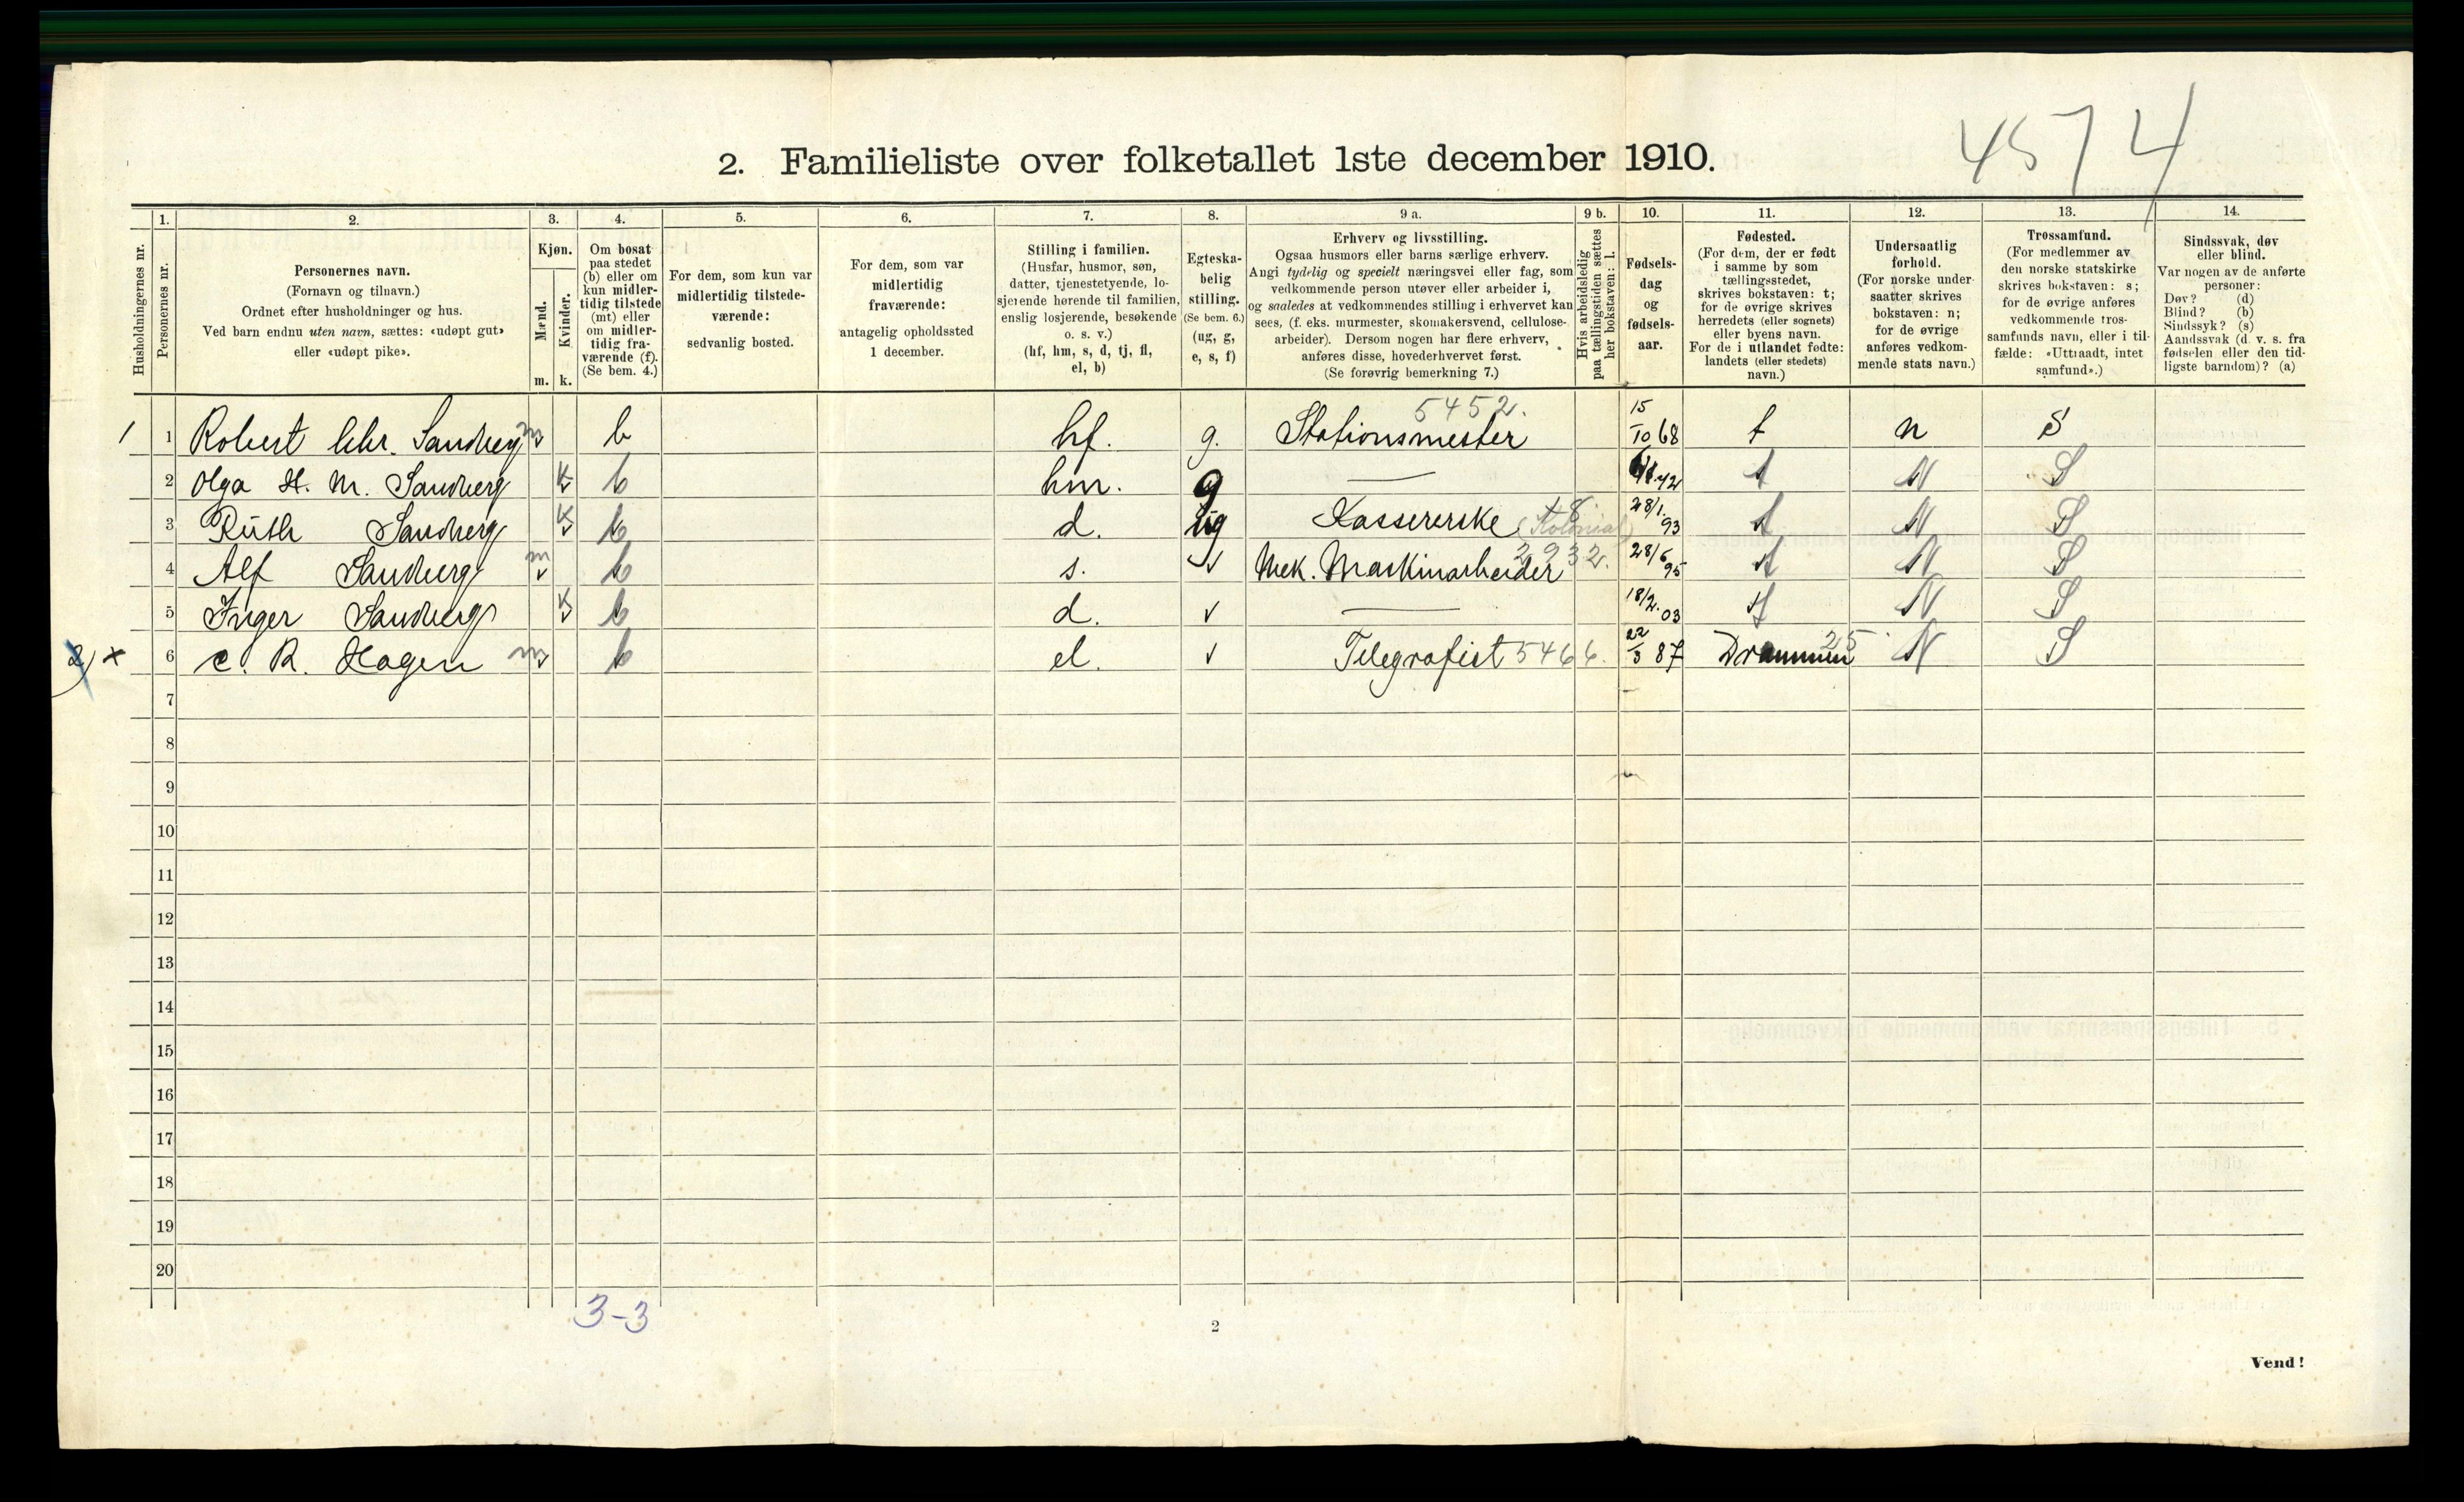 4574
2. Familieliste over folketallet 1ste december 1910.
Husholdningernes nr.
1. Personernes nr.
2. Personernes navn. (Fornavn og tilnavn.) Ordnet efter husholdninger og hus. Ved barn endnu uten navn, sættes: «udøpt gut» eller «udøpt pike».
3. Kjøn. Mænd. m. Kvinder. k.
4. Om bosat paa stedet (b) eller om kun midlertidig tilstede (mt) eller om midlertidig fraværende (f). (Se bem. 4.)
5. For dem, som kun var midlertidig tilstedeværende: sedvanlig bosted.
6. For dem, som var midlertidig fraværende: antagelig opholdssted 1 december.
7. Stilling i familien. (Husfar, husmor, søn, datter, tjenestetyende, losjerende hørende til familien, enslig losjerende, besøkende o. s. v.) (hf, hm, s, d, tj, fl, el, b)
8. Egteskabelig stilling. (Se bem. 6.) (ug, g, e, s, f)
9 a. Erhverv og livsstilling. Ogsaa husmors eller barns særlige erhverv. Angi tydelig og specielt næringsvei eller fag, som vedkommende person utøver eller arbeider i, og saaledes at vedkommendes stilling i erhvervet kan sees, (f. eks. murmester, skomakersvend, cellulosearbeider). Dersom nogen har flere erhverv, anføres disse, hovederhvervet først. (Se forøvrig bemerkning 7.)
9 b. Hvis arbeidsledig paa tællingstiden sættes her bokstaven: l.
10. Fødselsdag og fødselsaar.
11. Fødested. (For dem, der er født i samme by som tællingsstedet, skrives bokstaven: t; for de øvrige skrives herredets (eller sognets) eller byens navn. For de i utlandet fødte: landets (eller stedets) navn.)
12. Undersaatlig forhold. (For norske undersaatter skrives bokstaven: n; for de øvrige anføres vedkommende stats navn.)
13. Trossamfund. (For medlemmer av den norske statskirke skrives bokstaven: s; for de øvrige anføres vedkommende trossamfunds navn, eller i tilfælde: «Uttraadt, intet samfund».)
14. Sindssvak, døv eller blind. Var nogen av de anførte personer: Døv? (d) Blind? (b) Sindssyk? (s) Aandssvak (d. v. s. fra fødselen eller den tidligste barndom)? (a)
1 1 Robert Chr. Sandberg m b hf. g. Stationsmester 5452. 15/10 68 t n S
2 Olga H. M. Sandberg k b hm. g — 72 t N S
3 Ruth Sandberg k b d. ug Kassererske (Kolonial) 28/1. 93 t N S
4 Alf Sandberg m b s. v Mek. Maskinarbeider 2932. 28/6 95 t N S
5 Inger Sandberg k b d. v — 18/2. 03 t N S
2) x 6 C. R. Hagen m b el. v Telegrafist 5466. 22/3 87 Drammen 25 N S
7
8
9
10
11
12
13
14
15
16
17
18
19
20
3-3
2
Vend!